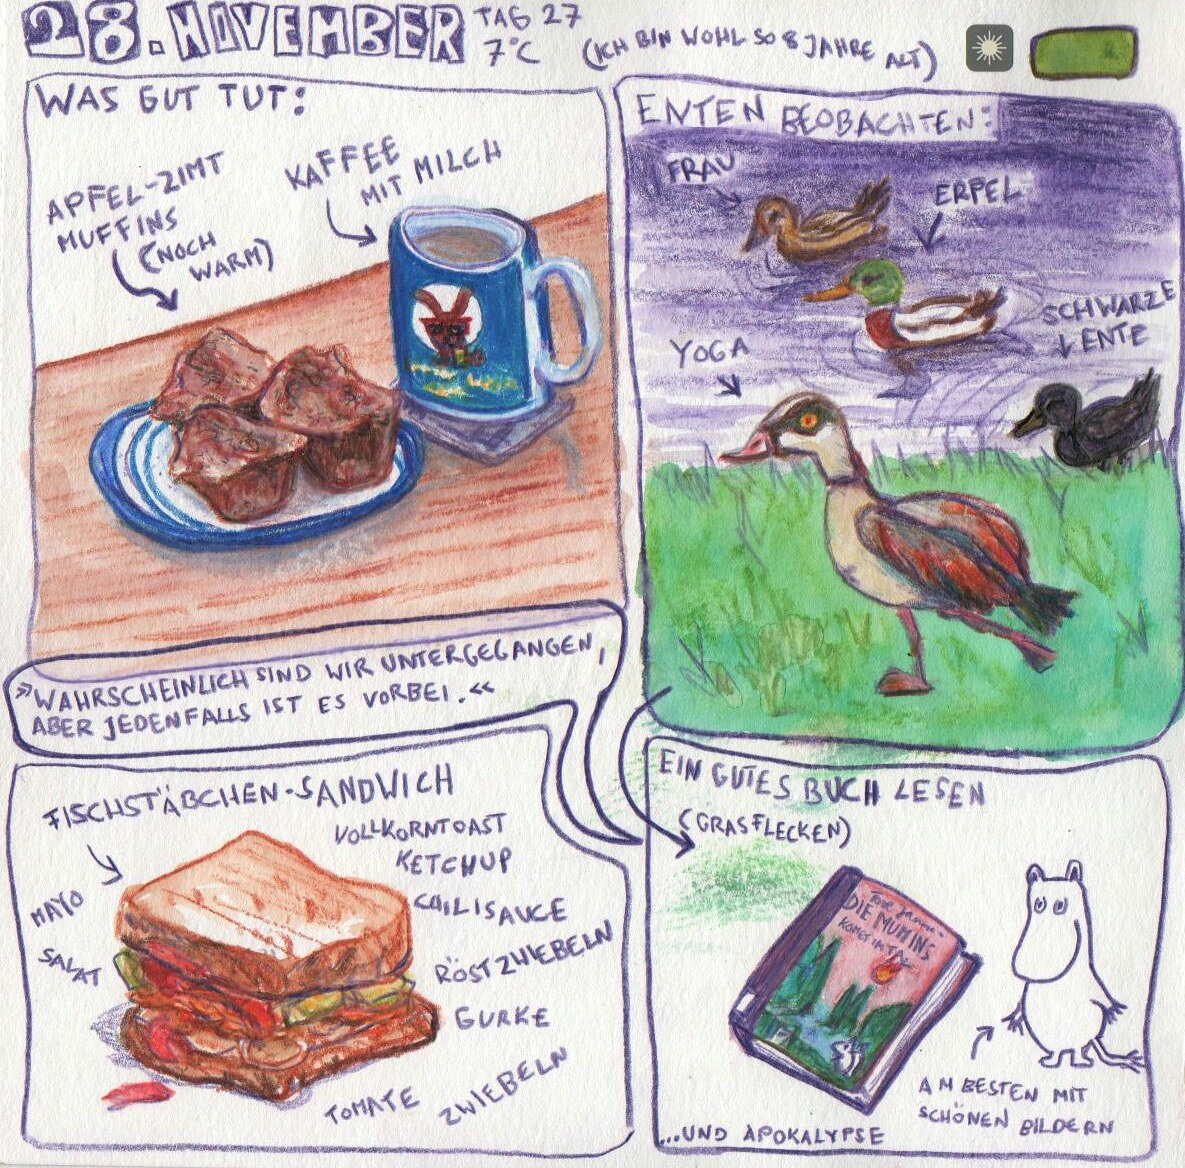 28. NOVEMBER
TAG 27
7°C
(ICH BIN WOHL SO 8 JAHRE ALT)
WAS GUT TUT:
APFEL-ZIMT
MUFFINS
(NOCH
WARM)
KAFFEE
MIT MILCH
ENTEN BEOBACHTEN:
FRAU
ERPEL
SCHWARZE
ENTE
YOGA
»WAHRSCHEINLICH SIND WIR UNTERGEGANGEN,
ABER JEDENFALLS IST ES VORBEI.«
FISCHSTÄBCHEN-SANDWICH
VOLLKORNTOAST
KETCHUP
MAYO
CHILISAUCE
SALAT
RÖSTZWIEBELN
GURKE
TOMATE
ZWIEBELN
EIN GUTES BUCH LESEN
(GRASFLECKEN)
DIE MUMINS
KOMET IM
AM BESTEN MIT
SCHÖNEN BILDERN
...UND APOKALYPSE